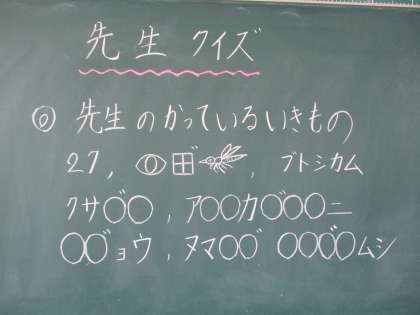 先生 クイズ
◎ 先生のかっているいきもの
27, ブトシカム
クサ○゙○, ア○○カ゛○゙○○ニ
○○゙ョウ, ヌマ○○゙ ○○○゙○ムシ